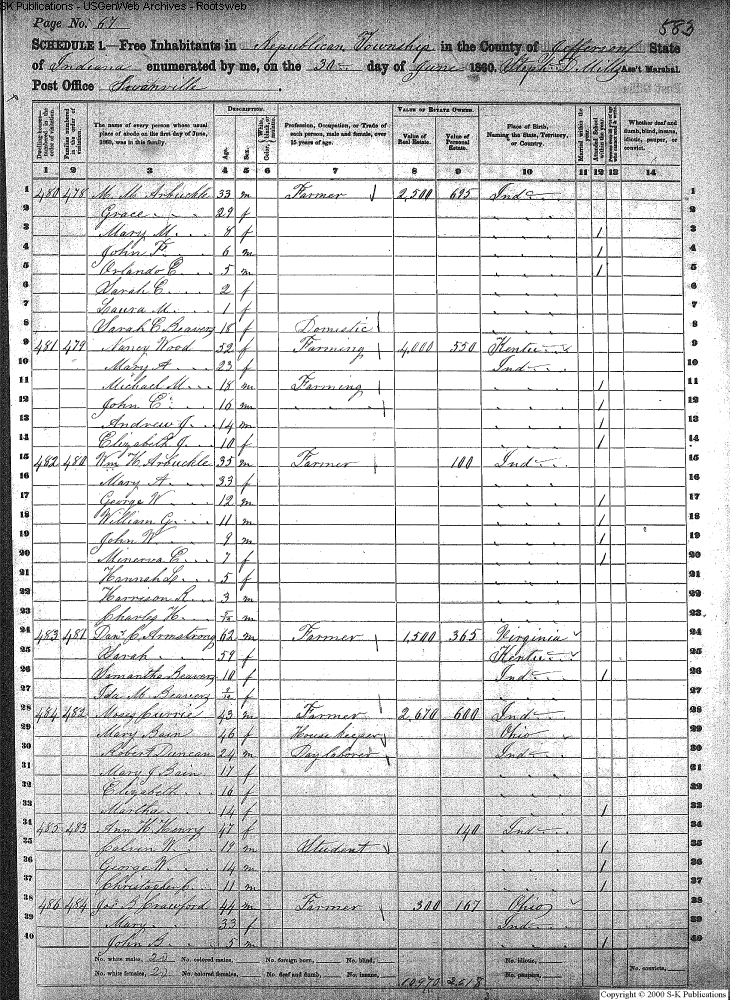 S-K Publications - USGenWeb Archives - Rootsweb
Page No. 67
583
SCHEDULE 1.—Free Inhabitants in Republican Township in the County of Jefferson State
of Indiana enumerated by me, on the 30 day of June 1860. Ass't Marshal.
Post Office Swanville
Dwelling-houses— numbered in the order of visitation.
Families numbered in the order of visitation.
The name of every person whose usual place of abode on the first day of June, 1860, was in this family.
DESCRIPTION.
Age.
Sex.
Color, White, black, or mulatto.
Profession, Occupation, or Trade of each person, male and female, over 15 years of age.
VALUE OF ESTATE OWNED.
Value of Real Estate.
Value of Personal Estate.
Place of Birth, Naming the State, Territory, or Country.
Married within the year.
Attended School within the year.
Whether deaf and dumb, blind, insane, idiotic, pauper, or convict.
1 2 3 4 5 6 7 8 9 10 11 12 13 14
1 480 478 M. M. Arbuckle 33 m Farmer 2,500 695 Ind 1
2 Grace 29 f 2
3 Mary M. 8 f / 3
4 John F. 6 m / 4
5 Orlando E. 5 m / 5
6 Sarah E. 2 f 6
7 Laura M. 1 f 7
8 Sarah E Beavers 18 f Domestic 8
9 481 479 Nancy Wood 52 f Farming 4,000 550 Kentu 9
10 Mary A. 23 f Ind 10
11 Michael M. 18 m Farming / 11
12 John E. 16 m / 12
13 Andrew J. 14 m / 13
14 Elizabeth J. 10 f / 14
15 482 480 Wm H. Arbuckle 35 m Farmer 100 Ind 15
16 Mary A. 33 f 16
17 George W. 12 m / 17
18 William G. 11 m / 18
19 John W. 9 m / 19
20 Minerva E. 7 f / 20
21 Hannah L. 5 f 21
22 Harrison R. 3 m 22
23 Charles H. m 23
24 483 481 Danl C. Armstrong 62 m Farmer 1,500 365 Virginia 24
25 Sarah 59 f Kentu 25
26 Samantha Beavers 10 f Ind / 26
27 Ida M Beavers f 27
28 484 482 Moses Currie 43 m Farmer 2,670 600 Ind 28
29 Mary Bain 46 f House keeper Ohio 29
30 Robert Duncan 24 m Day laborer Ind 30
31 Mary J Bain 17 f 31
32 Elizabeth 16 f 32
33 Martha 14 f / 33
34 485 483 Ann H. Henry 47 f 140 Ind 34
35 Calvin W. 19 m Student / 35
36 George W. 14 m / 36
37 Christopher C. 11 m / 37
38 486 484 Jas B Crawford 44 m Farmer 300 167 Ohio 38
39 Mary 33 f Ind 39
40 John B. 5 m / 40
No. white males, No. colored males, No. foreign born, No. blind, No. idiotic, No. convicts,
No. white females, No. colored females, No. deaf and dumb, No. insane, 10970 2518 No. paupers,
Copyright © 2000 S-K Publications